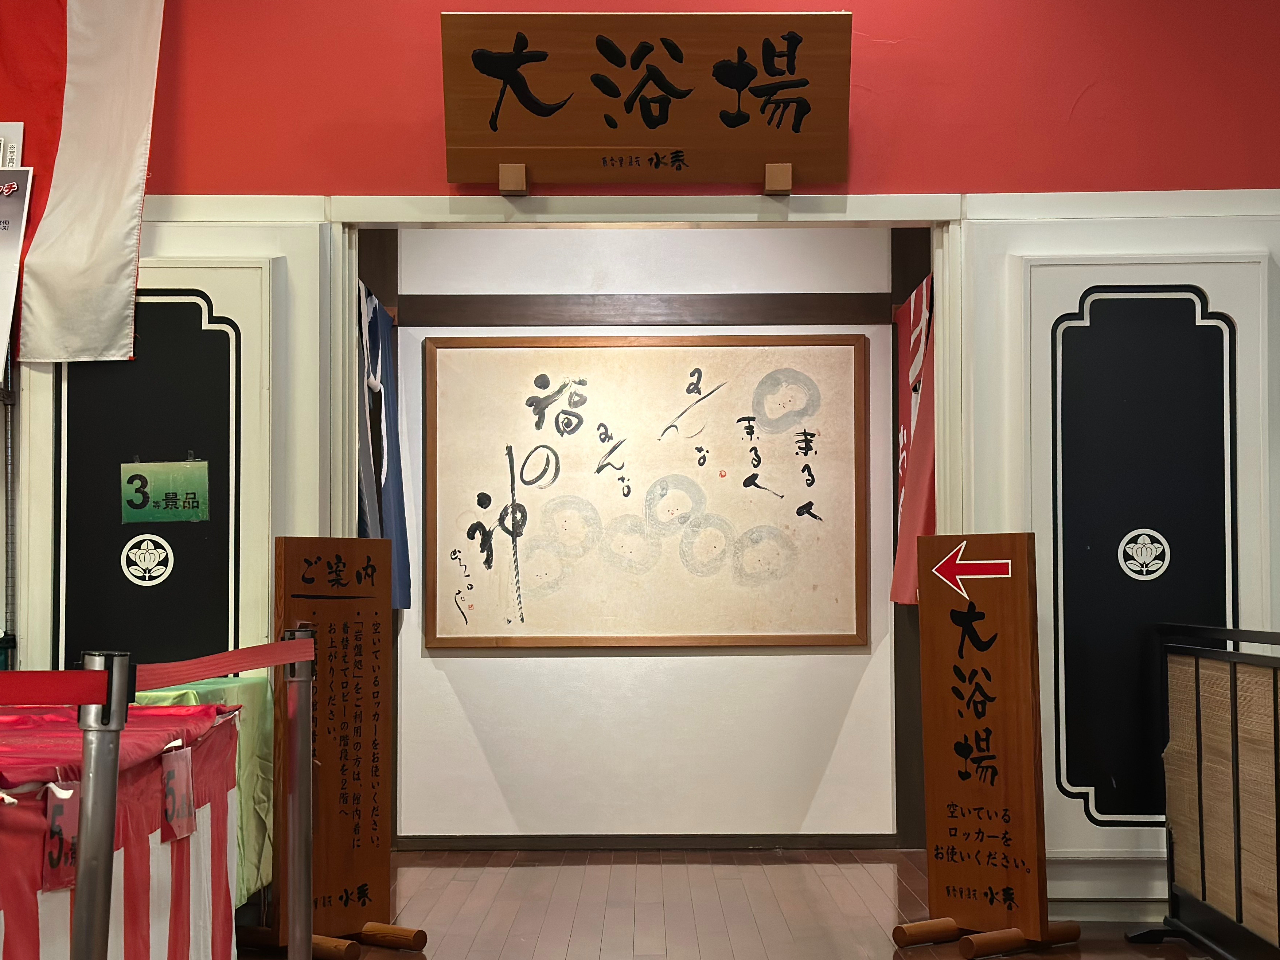 大浴場
水春
来る人
来る人
みんな
みんな
福の神
3等景品
ご案内
・空いているロッカーをお使いください。
・「岩盤処」をご利用の方は、館内着に
着替えてロビーの階段を2階へ
お上がりください。
水春
大浴場
空いている
ロッカーを
お使いください。
水春
5
5